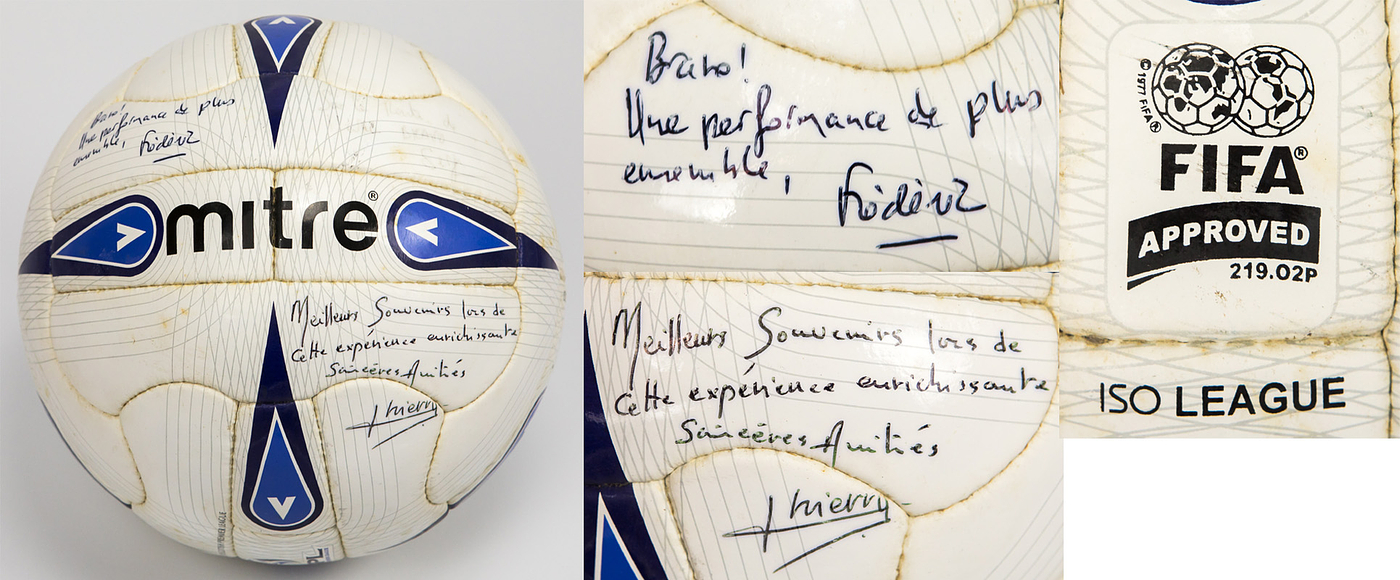 Bravo!
Une performance de plus
ensemble, Frédéric
mitre®
Meilleurs Souvenirs lors de
Cette expérience enrichissante
Sincères Amitiés
Thierry
Bravo!
Une performance de plus
ensemble, Frédéric
Meilleurs Souvenirs lors de
Cette expérience enrichissante
Sincères Amitiés
Thierry
© 1977 FIFA®
FIFA®
APPROVED
219.02P
ISO LEAGUE